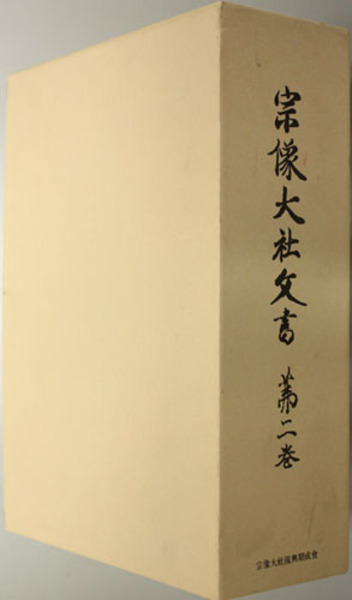 宗像大社文書 第二巻
宗像大社復興期成會